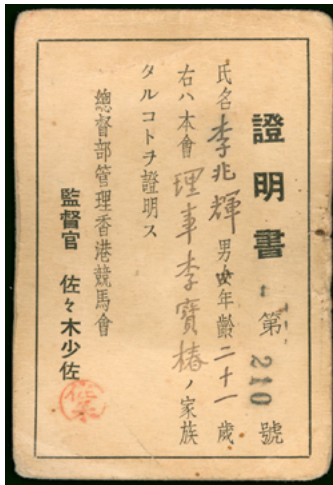 證明書 第210號
氏名 李兆輝 男女年齡二十一歲
右ハ本會 理事李寶椿ノ家族
タルコトヲ證明ス
總督部管理香港競馬會
監督官 佐々木少佐